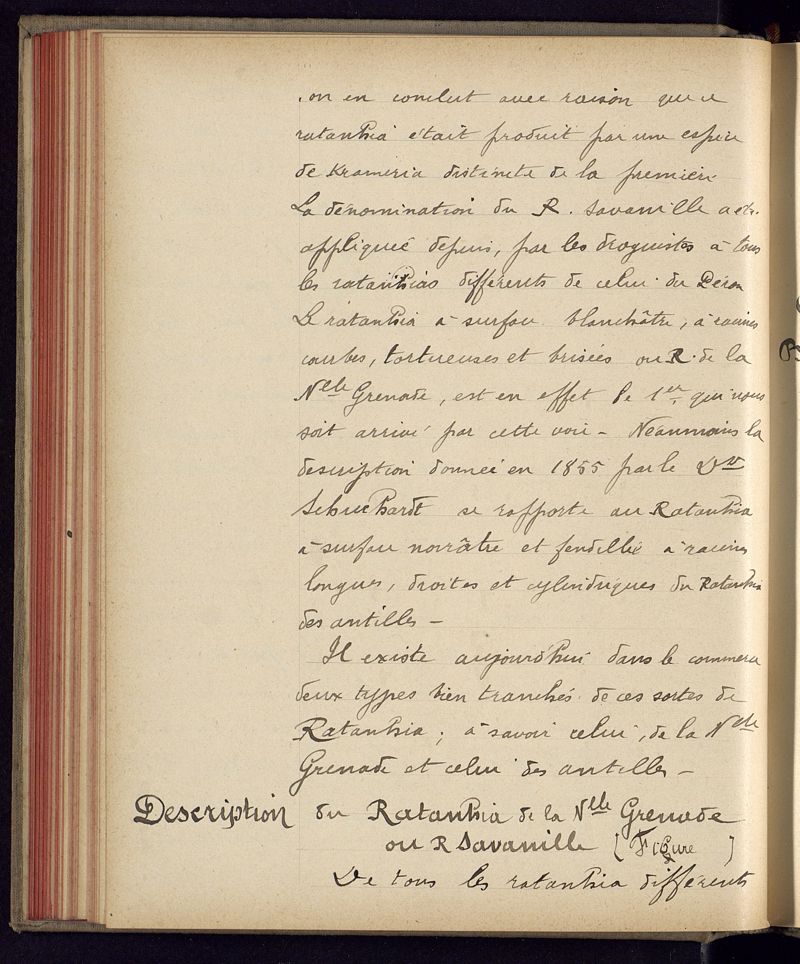 on en conclut avec raison que ce
ratanhia était produit par une espèce
de Krameria distincte de la première
La dénomination du R. Savanille a été
appliquée depuis, par les droguistes à tous
les ratanhias différents de celui du Pérou
Le ratanhia à surface blanchâtre, à racines
courbes, tortueuses et brisées ou R. de la
Nelle Grenade, est en effet le 1er qui nous
soit arrivé par cette voie - Néanmoins la
description donnée en 1855 par le Dr
Schuchardt se rapporte au Ratanhia
à surface noirâtre et fendillée à racines
longues, droites et cylindriques du Ratanhia
des antilles -
Il existe aujourd'hui dans le commerce
deux types bien tranchés de ces sortes de
Ratanhia ; à savoir celui, de la Nelle
Grenade et celui des antilles -
Description du Ratanhia de la Nelle Grenade
ou R Savanille [Figure ]
De tous les ratanhia différents